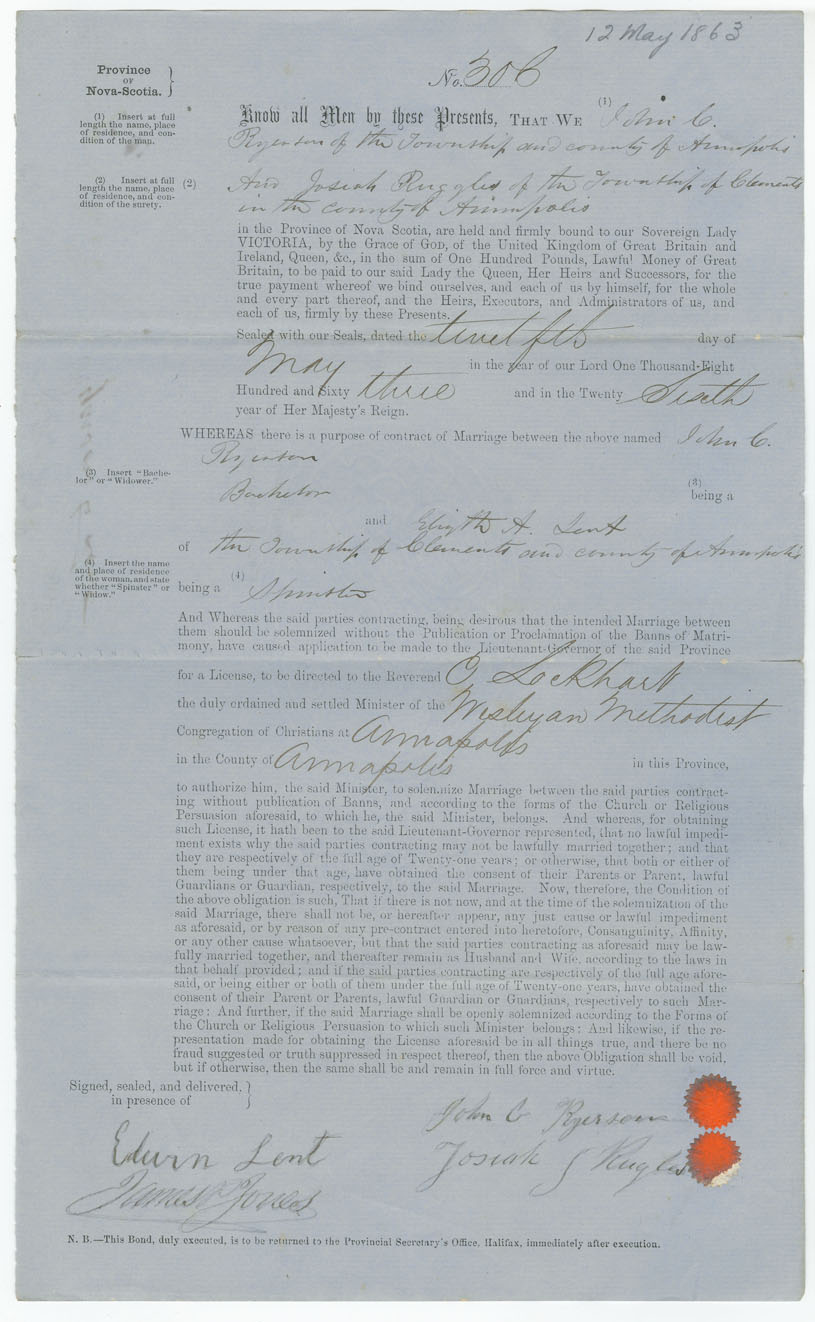 12 May 1863
Province
OF
Nova-Scotia.
No. 306
(1) Insert at full
length the name, place
of residence, and con-
dition of the man.
Know all Men by these Presents, THAT WE (1) John C.
Ryerson of the Township and county of Annapolis
(2) Insert at full
length the name, place
of residence, and con-
dition of the surety.
(2) And Josiah Ruggles of the Township of Clements
in the county of Annapolis
in the Province of Nova Scotia, are held and firmly bound to our Sovereign Lady
VICTORIA, by the Grace of GOD, of the United Kingdom of Great Britain and
Ireland, Queen, &c., in the sum of One Hundred Pounds, Lawful Money of Great
Britain, to be paid to our said Lady the Queen, Her Heirs and Successors, for the
true payment whereof we bind ourselves, and each of us by himself, for the whole
and every part thereof, and the Heirs, Executors, and Administrators of us, and
each of us, firmly by these Presents.
Sealed with our Seals, dated the twelfth day of
May in the year of our Lord One Thousand-Eight
Hundred and Sixty three and in the Twenty Sixth
year of Her Majesty's Reign.
WHEREAS there is a purpose of contract of Marriage between the above named John C.
Ryerson
(3) Insert "Bache-
lor" or "Widower."
Bachelor (3) being a
and A. Lent
of the Township of Clements and county of Annapolis
(4) Insert the name
and place of residence
of the woman, and state
whether "Spinster" or
"Widow."
being a (4) Spinster
And Whereas the said parties contracting, being desirous that the intended Marriage between
them should be solemnized without the Publication or Proclamation of the Banns of Matri-
mony, have caused application to be made to the Lieutenant-Governor of the said Province
for a License, to be directed to the Reverend C. Lockhart
the duly ordained and settled Minister of the Wesleyan Methodist
Congregation of Christians at Annapolis
in the County of Annapolis in this Province,
to authorize him, the said Minister, to solemnize Marriage between the said parties contract-
ing without publication of Banns, and according to the forms of the Church or Religious
Persuasion aforesaid, to which he, the said Minister, belongs. And whereas, for obtaining
such License, it hath been to the said Lieutenant-Governor represented, that no lawful impedi-
ment exists why the said parties contracting may not be lawfully married together; and that
they are respectively of the full age of Twenty-one years; or otherwise, that both or either of
them being under that age, have obtained the consent of their Parents or Parent, lawful
Guardians or Guardian, respectively, to the said Marriage. Now, therefore, the Condition of
the above obligation is such, That if there is not now, and at the time of the solemnization of the
said Marriage, there shall not be, or hereafter appear, any just cause or lawful impediment
as aforesaid, or by reason of any pre-contract entered into heretofore, Consanguinity, Affinity,
or any other cause whatsoever, but that the said parties contracting as aforesaid may be law-
fully married together, and thereafter remain as Husband and Wife, according to the laws in
that behalf provided; and if the said parties contracting are respectively of the full age afore-
said, or being either or both of them under the full age of Twenty-one years, have obtained the
consent of their Parent or Parents, lawful Guardian or Guardians, respectively to such Mar-
riage: And further, if the said Marriage shall be openly solemnized according to the Forms of
the Church or Religious Persuasion to which such Minister belongs: And likewise, if the re-
presentation made for obtaining the License aforesaid be in all things true, and there be no
fraud suggested or truth suppressed in respect thereof, then the above Obligation shall be void,
but if otherwise, then the same shall be and remain in full force and virtue.
Signed, sealed, and delivered,
in presence of
John C Ryerson
Edwin Lent
Josiah Ruggles
James Jones
N. B.—This Bond, duly executed, is to be returned to the Provincial Secretary's Office, Halifax, immediately after execution.